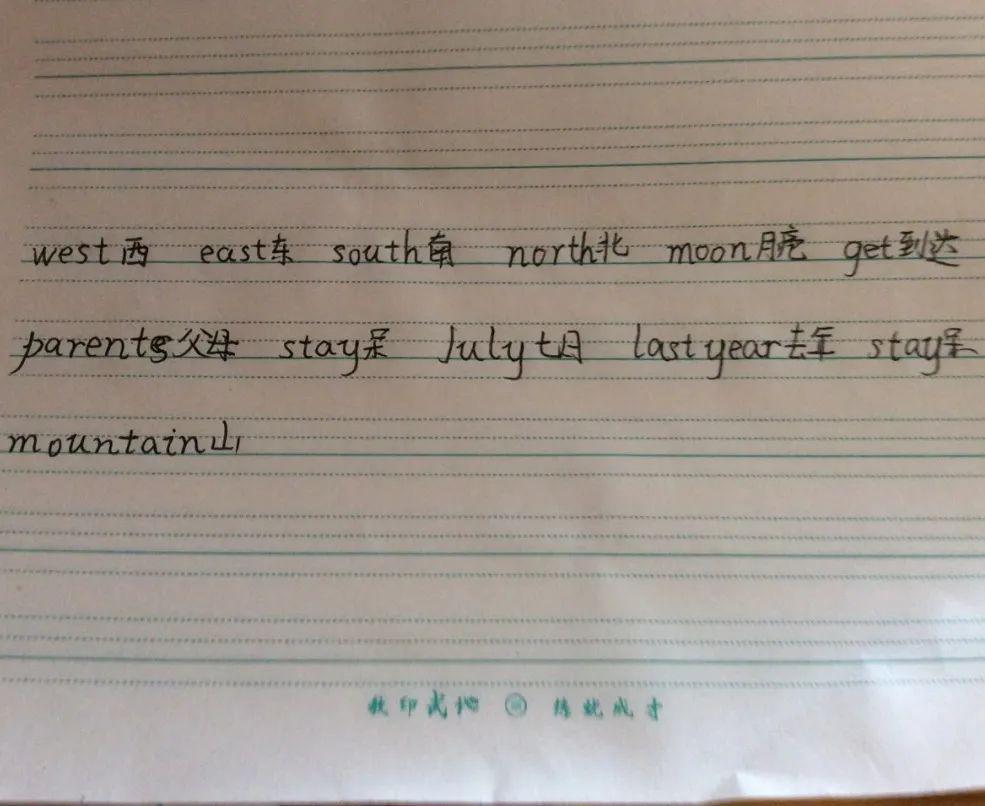 west西 east东 south南 north北 moon月亮 get到达
parents父母 stay呆 July七月 last year去年 stay呆
mountain山